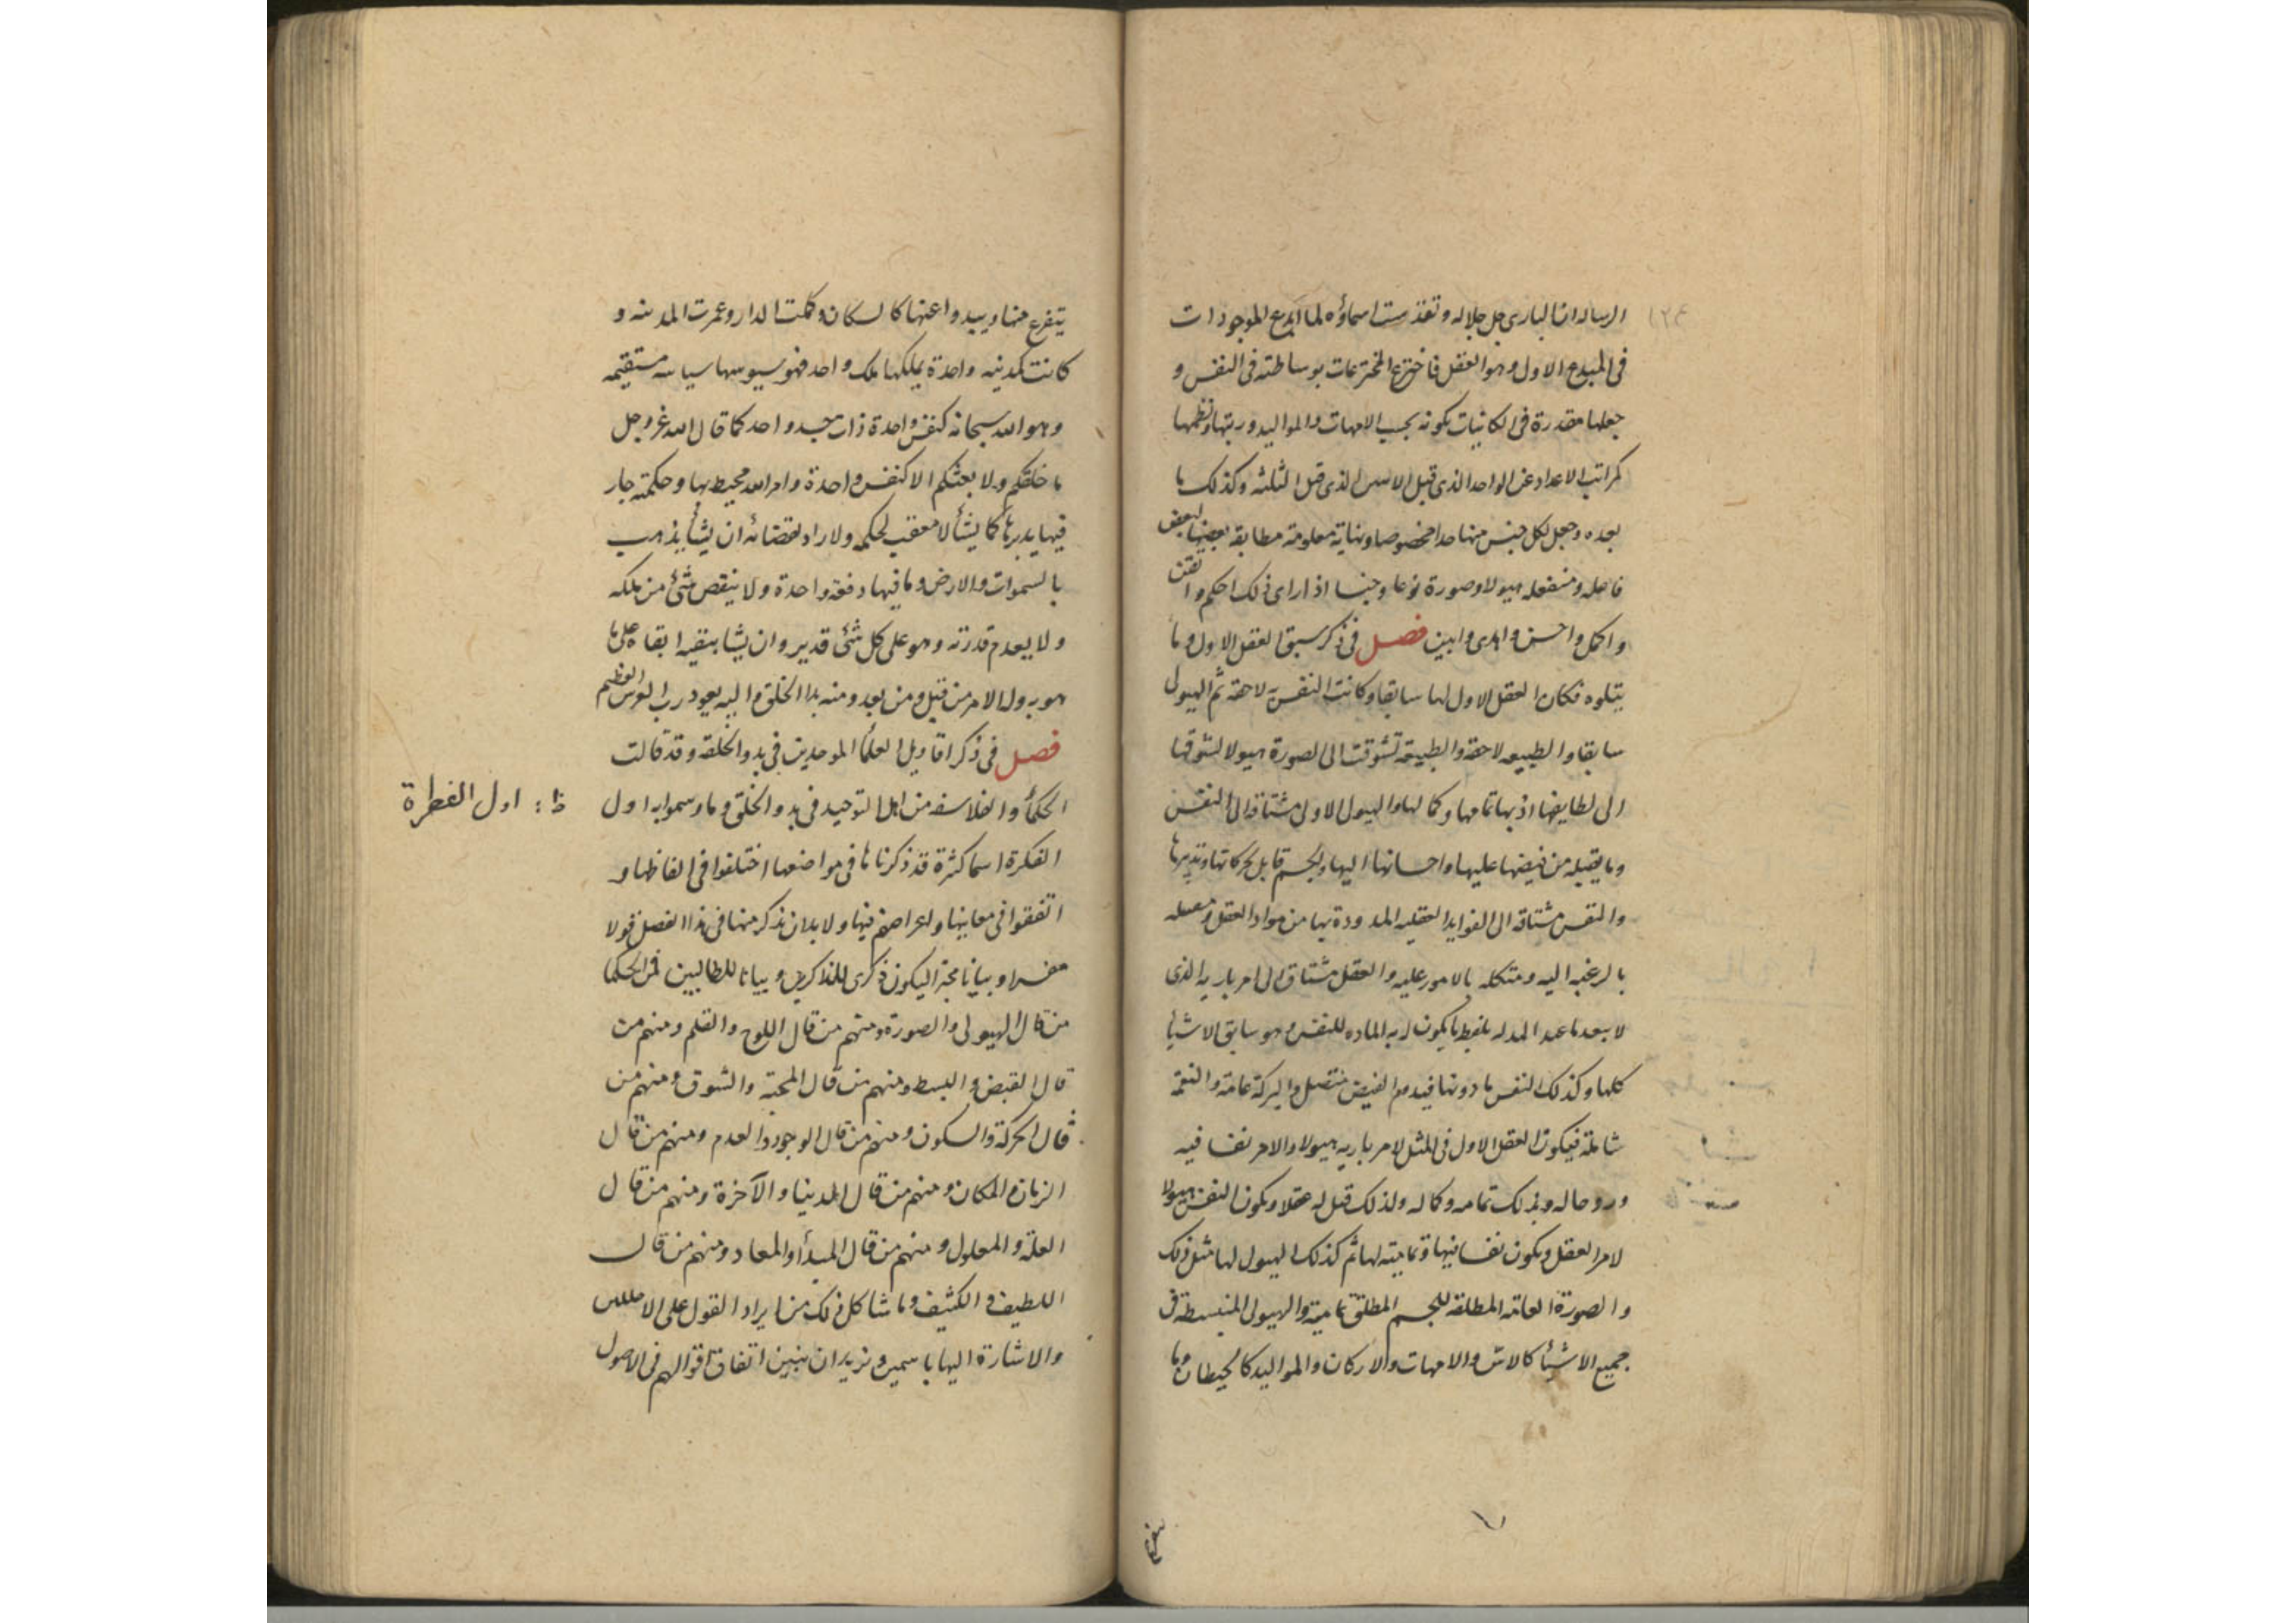 الرساله ان الباری جل جلاله وتقدست اسماؤه لما ابدع الموجودات
فی المبدع الاول وهو العقل فاخترع المخترعات بوساطته فی النفس و
جعلها مقدرة فی الكائنیات بكونه بحسب الامهات والموالید ورتبها ونظمها
كمراتب الاعداد عن الواحد الذی قبل الاثنین الذی قبل الثلثه وكذلك ما
بعده وجعل لكل جنس منها حدا مخصوصا ونهایة معلومة مطابقة بعضها لبعض
فاعله ومنفعله هیولا وصورة نوعا وجنسا اذ ارای ذلك احكم واتقن
واكمل واحسن واهدی وابین فصل فی ذكر سبق العقل الاول وما
یتلوه فكان العقل الاول لها سابقا وكانت النفس لاحقه ثم الهیولی
سابقا والطبیعه لاحقه والطبیعة تشوقت الی الصورة هیولا لتشوقها
الی لطایفها اذ بها تمامها وكمالها والهیولی الاولی مشتاقه الی النفس
وما یقبله من فیضها علیها واحسانها الیها والجسم قابل لحركاتها وتدبیرها
والنفس مشتاقه الی الفواید العقلیه الممدودة بها من مواد العقل
بالرغبه الیه ومتكله بالامور علیه والعقل مشتاق الی امر باریه الذی
لا یعدنا عند یكون له به الماده للنفس وهو سابق الاشیأ
كلها وكذلك النفس ما دونها فیدوم الفیض متصل والبركة عامة والنعمة
شاملة فیكون العقل الاول فی المثل لامر باریه هیولا والامر نفسا فیه
وروحا له وبذلك تمامه وكماله ولذلك قیل له عقلا وتكون النفس هیولا
لامر العقل ویكون نفسا فیها وتمامیته لها ثم كذلك الهیولی لها مثل ذلك
والصورة العامه المطلقه للجسم المطلق تمامیة والهیولی المنبسطة فی
جمیع الاشیأ كالاس والامهات والاركان والموالید كالحیطان وما
یتفرع
یتفرع منها ویبدوا عنها كالسكان وكملت الدار وعمرت المدینه و
كانت كمدینه واحدة یملكها ملك واحد فهو یسوسها سیاسه مستقیمه
وهو الله سبحانه كنفس واحدة ذات جسد واحد كما قال الله عز وجل
ما خلقكم ولا بعثكم الا كنفس واحدة وامر الله محیط بها وحكمته جار
فیها یدبرها كما یشأ لا معقب لحكمه ولا راد لقضائه ان یشأ یذهب
بالسموات والارض وما فیها دفعة واحدة ولا ینقص شئ من ملكه
ولا یعدم قدرته وهو علی كل شئ قدیر وان یشا یبقیه ابقاه علی ما
هو به وله الامر من قبل ومن بعد ومنه بدا الخلق والیه یعود رب العرش العظیم
فصل فی ذكر اقاویل العلمأ الموحدین فی بدو الخلقه وقد قالت
الحكمأ والفلاسفه من اهل التوحید فی بدو الخلق وما وسموا به اول
ظ: اول الفطرة
الفكرة اسما كثرة قد ذكرناها فی مواضعها اختلفوا فی الفاظها و
اتفقوا فی معانیها واغراضهم فیها ولا بد ان نذكر منها فی هذا الفصل قولا
مفسرا وبیانا مجتزا لیكون ذكری للذاكرین وبیانا للطالبین فمن الحكما
من قال الهیولی والصورة ومنهم من قال اللوح والقلم ومنهم من
قال القبض والبسط ومنهم من قال المحبة والشوق ومنهم من
قال الحركة والسكون ومنهم من قال الوجود والعدم ومنهم من قال
الزمان والمكان ومنهم من قال الدنیا والآخرة ومنهم من قال
العلة والمعلول ومنهم من قال المبدأ والمعاد ومنهم من قال
اللطیف والكثیف وما شاكل ذلك من ایراد القول علی الاصلین
والاشارة الیها باسمین ونرید ان نبین اتفاق اقوالهم فی الاصول